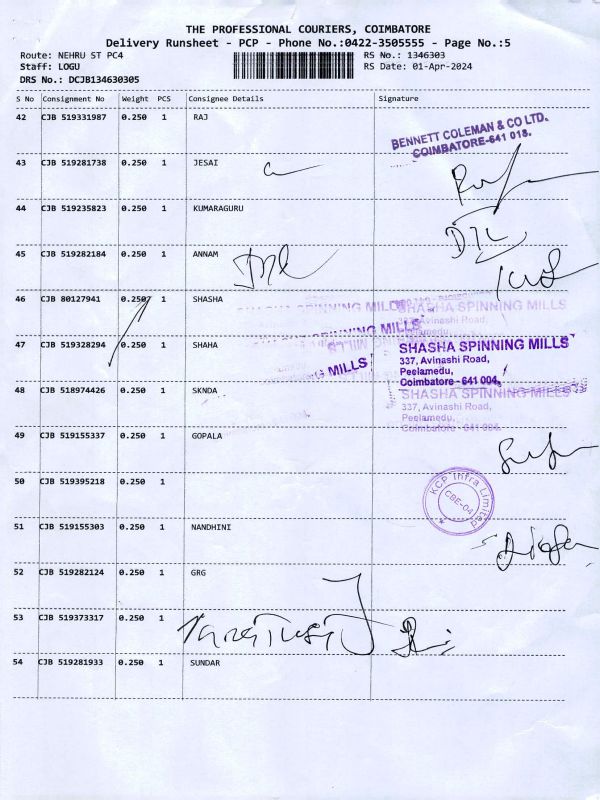 THE PROFESSIONAL COURIERS, COIMBATORE
Delivery Runsheet - PCP - Phone No.:0422-3505555 - Page No.:5
Route: NEHRU ST PC4 RS No.: 1346303
Staff: LOGU RS Date: 01-Apr-2024
DRS No.: DCJB134630305
S No Consignment No Weight PCS Consignee Details Signature
42 CJB 519331987 0.250 1 RAJ
BENNETT COLEMAN & CO LTD.
COIMBATORE-641 018.
43 CJB 519281738 0.250 1 JESAI
44 CJB 519235823 0.250 1 KUMARAGURU
45 CJB 519282184 0.250 1 ANNAM
46 CJB 80127941 0.250 1 SHASHA
SPINNING MILLS
SHASHA SPINNING MILLS
337, Avinashi Road,
Peelamedu,
SPINNING MILLS
47 CJB 519328294 0.250 1 SHAHA
SHASHA SPINNING MILLS
337, Avinashi Road,
Peelamedu,
Coimbatore - 641 004.
MILLS
48 CJB 518974426 0.250 1 SKNDA
SHASHA SPINNING MILLS
337, Avinashi Road,
Peelamedu,
Coimbatore - 641 004.
49 CJB 519155337 0.250 1 GOPALA
50 CJB 519395218 0.250 1
KCP Infra Limited
CBE-04
51 CJB 519155303 0.250 1 NANDHINI
52 CJB 519282124 0.250 1 GRG
53 CJB 519373317 0.250 1
54 CJB 519281933 0.250 1 SUNDAR